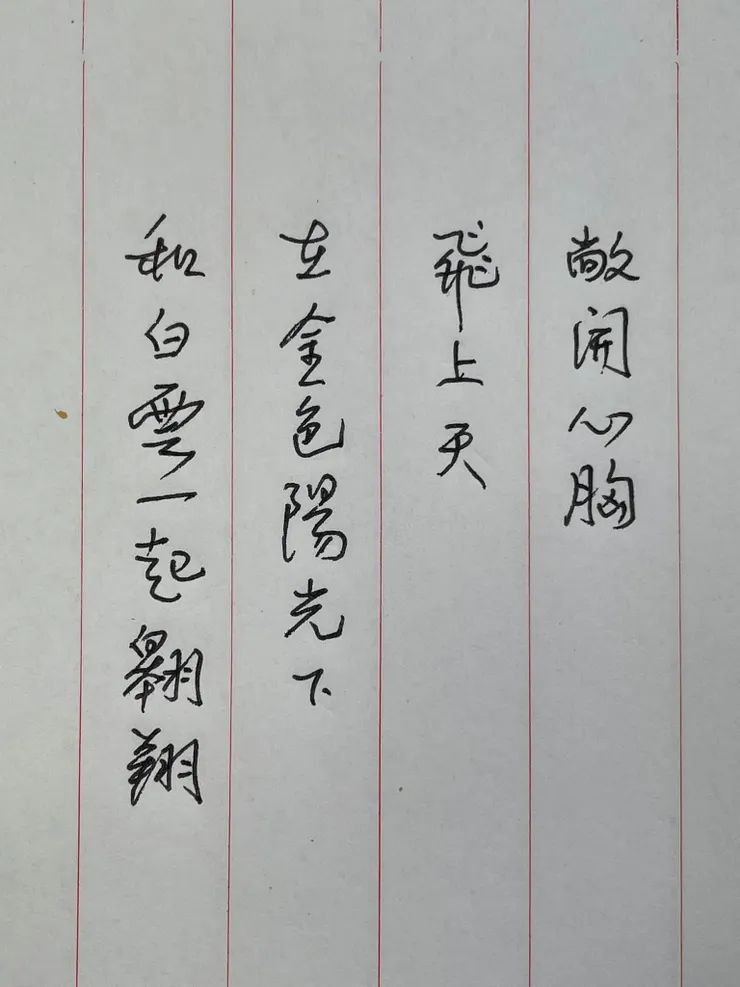 敞開心胸
飛上天
在金色陽光下
和白雲一起翱翔